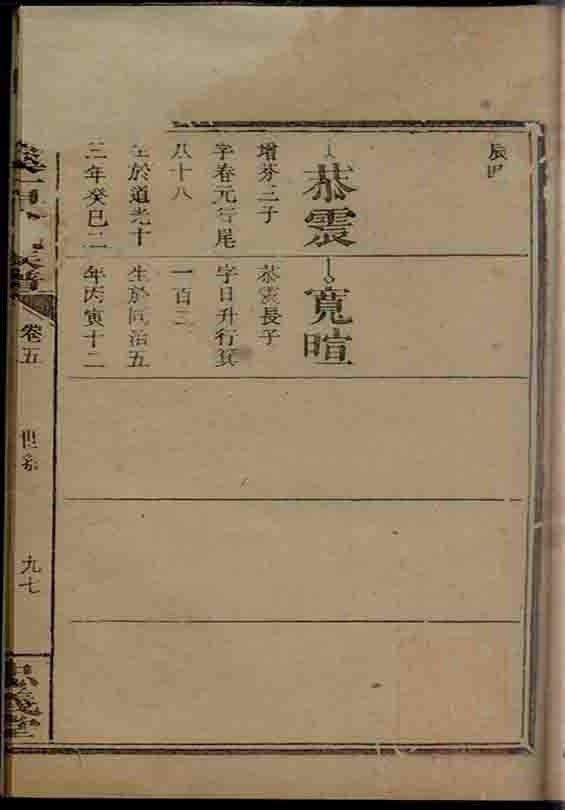 辰時
恭震
增芬三子
字春元行尾
八十八
生於道光十
三年癸巳二
寬暄
恭震長子
字日升行箕
一百二
生於同治五
年丙寅十二
族譜
卷五
世系
九七
忠義堂